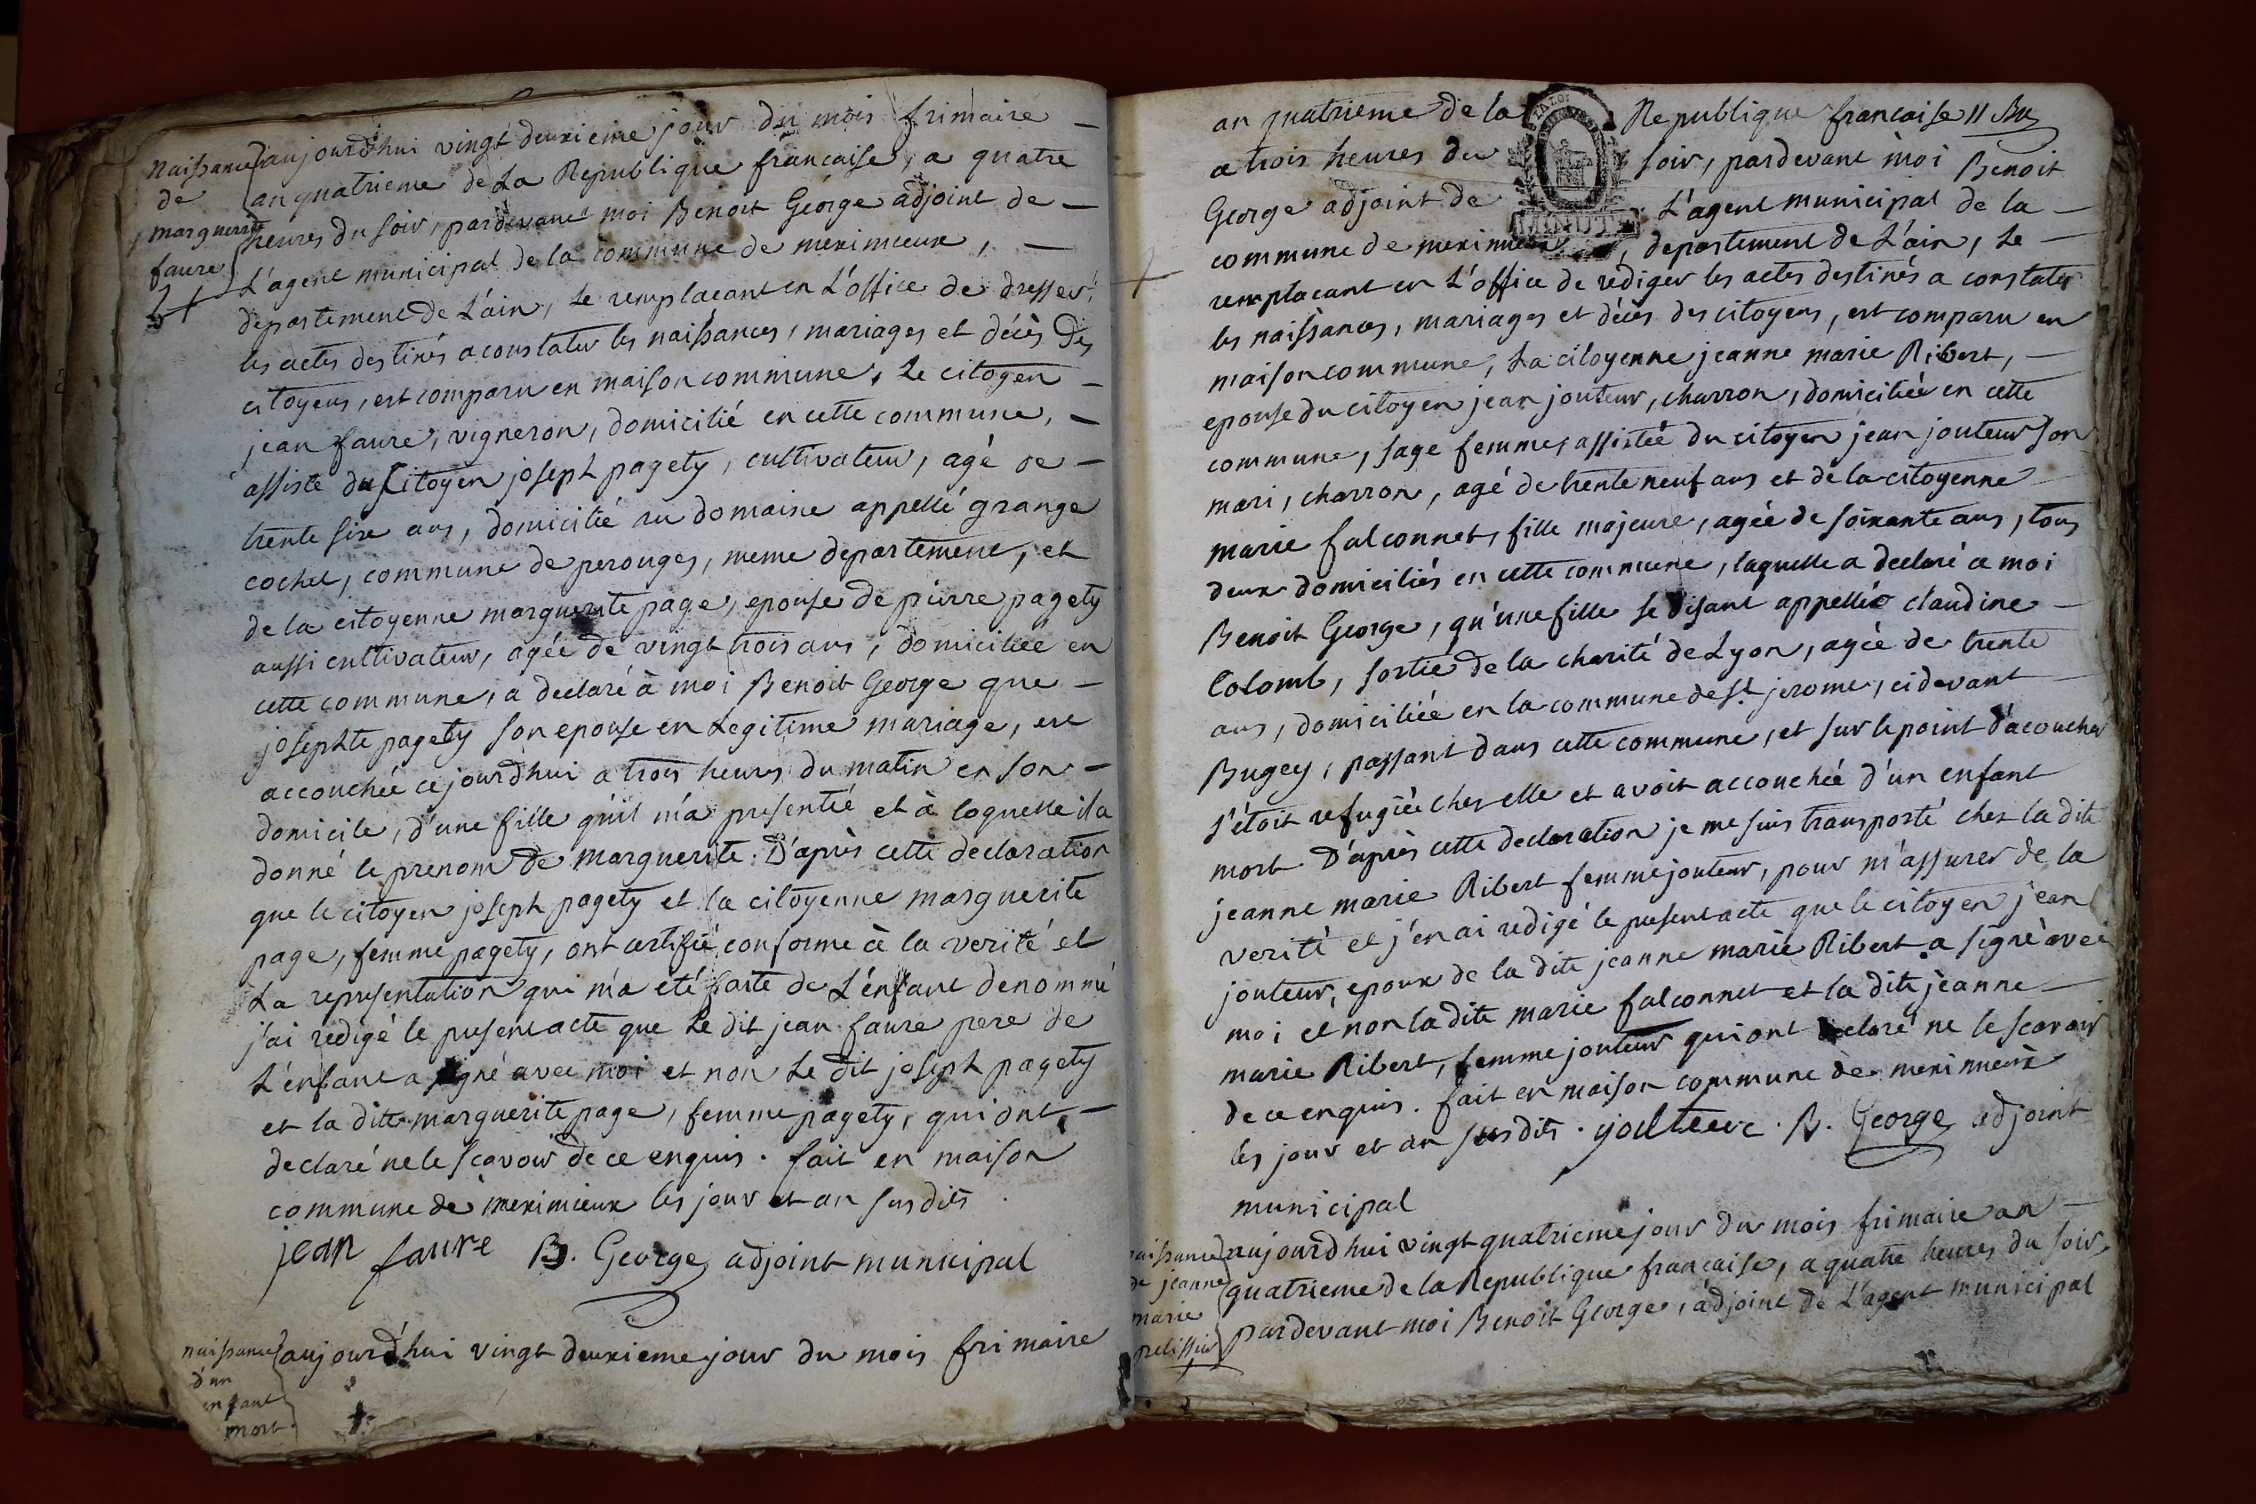 naissance
de
marguerite
faure
aujourd'hui vingt deuxieme jour du mois frimaire
an quatrieme de La Republique francaise, a quatre
heures du soir, pardevant moi Benoit George adjoint de
L'agent municipal de la commune de meximieux,
departement de L'ain, le remplaçant en L'office de dresser
les actes destinés a constater les naissances, mariages et décès des
citoyens, est comparu en maison commune, Le citoyen
jean faure, vigneron, domicilié en cette commune,
assisté du Citoyen joseph pagety, cultivateur, agé de
trente six ans, domicilié au domaine appellé grange
cochet, commune de perouges, meme departement, et
de la citoyenne marguerite page, epouse de pierre pagety
aussi cultivateur, agée de vingt trois ans, domiciliée en
cette commune, a declaré à moi Benoit George que
josephte pagety son epouse en Legitime mariage, est
accouchée cejourd'hui a trois heures du matin en son
domicile, d'une fille qu'il m'a presentée et à laquelle il a
donné le prenom de marguerite. D'après cette declaration
que le citoyen joseph pagety et la citoyenne marguerite
page, femme pagety, ont certifié conforme à la verité et
La representation qui m'a eté faite de L'enfant denommé
j'ai redigé le present acte que Le dit jean faure pere de
L'enfant a signé avec moi et non Le dit joseph pagety
et la dite marguerite page, femme pagety, qui ont
declaré ne le scavoir de ce enquis. fait en maison
commune de meximieux les jour et an susdits
jean faure B. George adjoint municipal
naissance
d'un
enfant
mort
aujourd'hui vingt deuxieme jour du mois frimaire
an quatrieme de la Republique francaise
a trois heures du soir, pardevant moi Benoit
George adjoint de L'agent municipal de la
commune de meximieux, departement de L'ain, Le
remplacant en L'office de rediger les actes destinés a constater
les naissances, mariages et décès des citoyens, est comparu en
maison commune, La citoyenne jeanne marie Ribert,
epouse du citoyen jean jouteur, charron, domiciliée en cette
commune, sage femme, assistée du citoyen jean jouteur son
mari, charron, agé de trente neuf ans et de la citoyenne
marie falconnet, fille majeure, agée de soixante ans, tous
deux domiciliés en cette commune, laquelle a declaré a moi
Benoit George, qu'une fille se disant appellée claudine
Colomb, sortie de la charité de Lyon, agée de trente
ans, domiciliée en la commune de St. jerome, cidevant
Bugey, passant dans cette commune, et sur le point d'acoucher
s'étoit refugiée chez elle et avoit accouchée d'un enfant
mort D'après cette declaration je me suis transporté chez la dite
jeanne marie Ribert femme jouteur, pour m'assurer de la
verité et j'en ai redigé le present acte que le citoyen jean
jouteur, epoux de la dite jeanne marie Ribert a signé avec
moi et non la dite marie falconnet et la dite jeanne
marie Ribert, femme jouteur qui ont declaré ne le scavoir
de ce enquis. fait en maison commune de meximieux
les jour et an susdits. B. George adjoint
municipal
naissance
de jeanne
marie
pelissier
aujourd'hui vingt quatrieme jour du mois frimaire an
quatrieme de la Republique francaise, a quatre heures du soir,
pardevant moi Benoit George, adjoint de L'agent municipal